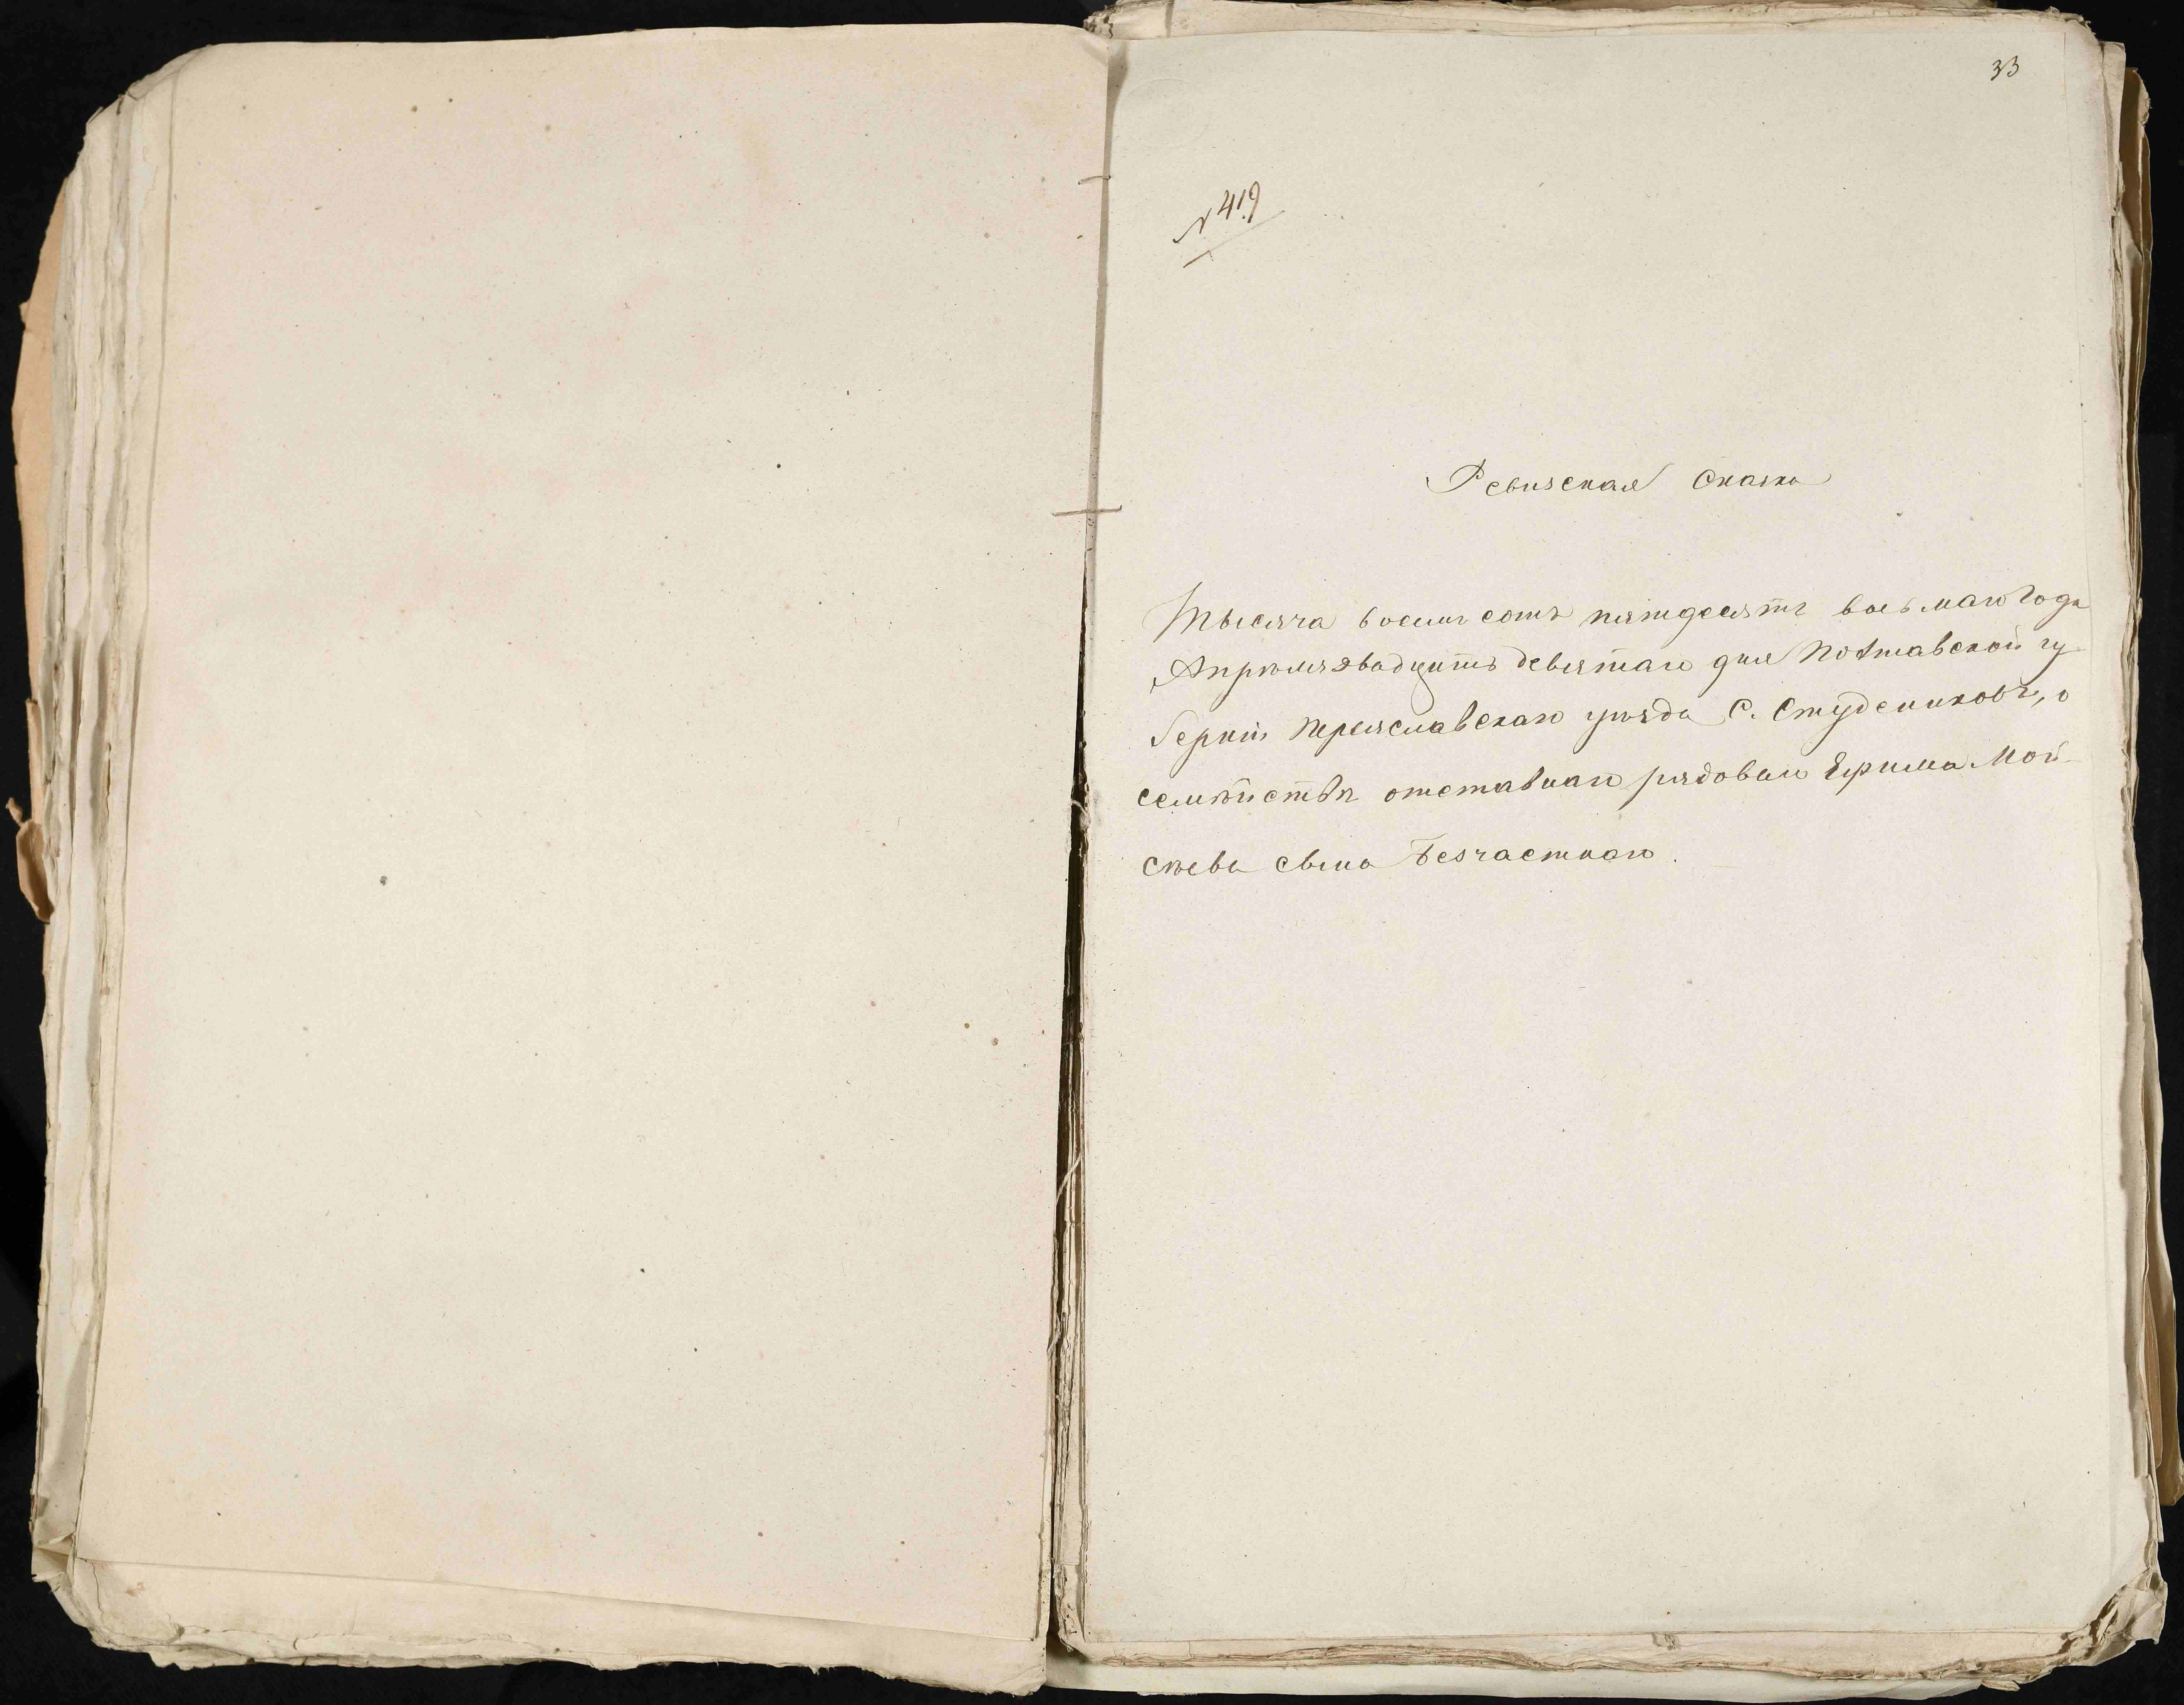 33
№ 419
Ревизская Сказка
Тысяча восемь сотъ пятдесятъ восьмаго года
Апрѣля двадцать девятаго дня Полтавской гу
берніи Переяславскаго уѣзда С. Студениковъ, о
семѣйствѣ отставнаго рядоваго Ефима Мой-
сѣева сына Безчастнаго.